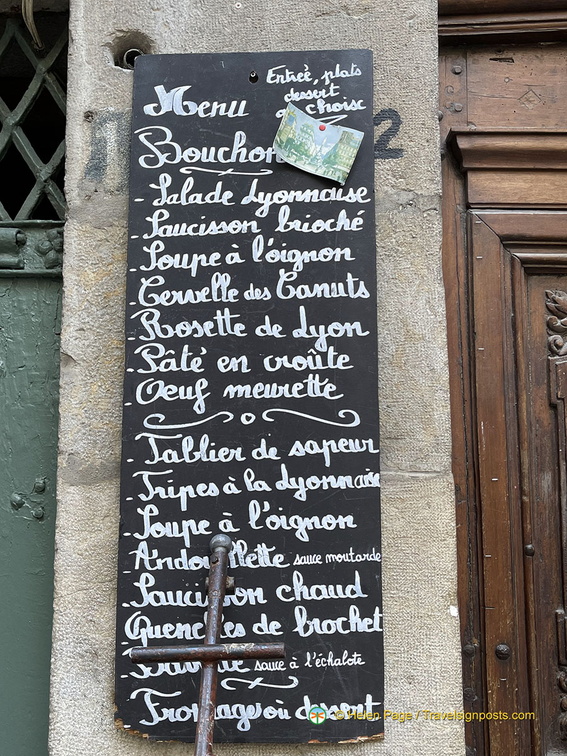 Entreè, plats
dessert
choisc
Menu
Bouchon
- Salade Lyonnaise
- Saucisson brioché
- Soupe à l'oignon
- Cervelle des Canuts
- Rosette de Lyon
- Pâté en croûte
- Oeuf meurette
- Tablier de sapeur
- Tripes à la Lyonnaise
- Soupe à l'oignon
- Andouillette sauce moutarde
- Saucisson chaud
- Quenelles de brochet
- Bavette sauce à l'échalote
- Fromage ou dessert
2
© Helen Page / Travelsignposts.com